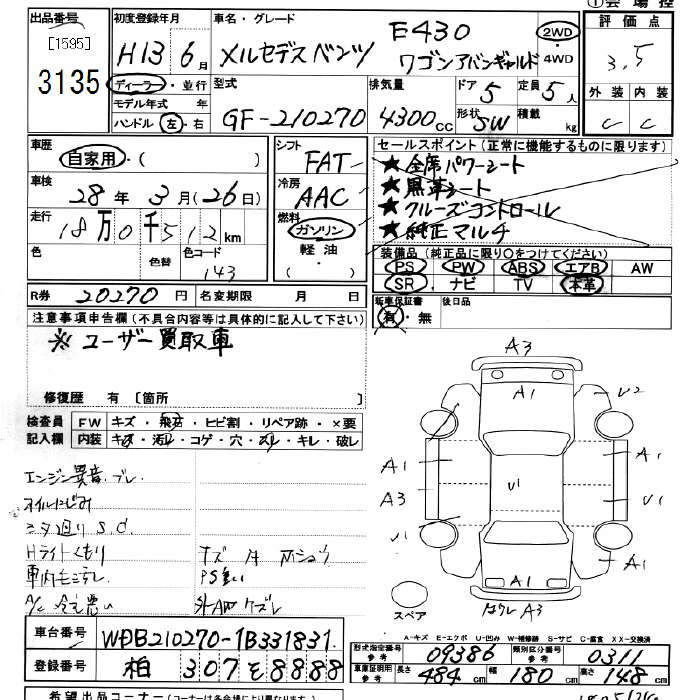 出品番号
[1595]
3135
初度登録年月
H13 6月
ディーラー・並行
モデル年式 年
ハンドル 左・右
車名・グレード
メルセデスベンツ E430
ワゴン アバンギャルド
2WD
4WD
型式
GF-210270
排気量
4300cc
ドア 5
定員 5人
形状 SW
積載 kg
評価点
3.5
外装 内装
C C
車歴
自家用・( )
車検
28年 3月(26日)
走行
18万0千512km
色
色替
色コード
143
シフト
FAT
冷房
AAC
燃料
ガソリン
軽油
( )
セールスポイント(正常に機能するものに限ります)
★全席パワーシート
★黒革シート
★クルーズコントロール
★純正マルチ
装備品(純正品に限り○をつけてください)
PS PW ABS エアB AW
SR ナビ TV 本革
R券 20270円
名変期限 月 日
新車保証書
有・無
後日品
注意事項申告欄(不具合内容等は具体的に記入して下さい)
※ユーザー買取車
修復歴 有 [箇所 ]
検査員
記入欄
FW キズ・飛石・ヒビ割・リペア跡・×要
内装 キズ・汚れ・コゲ・穴・スレ・キレ・破レ
エンジン異音.ブレ
オイルにじみ
Hライトくもり
A/C 冷え悪い
A3
A1
U2
A1
A3
U1
U1
U1
A1
A1
A3
スペア
A-キズ E-エクボ U-凹み W-補修跡 S-サビ C-腐食 XX-交換済
車台番号
WDB210270-1B331831
登録番号
柏 307 そ 8888
型式指定番号
参考
09386
類別区分番号
参考
0311
車庫証明用
参考
長さ 484cm
幅 180cm
高さ 148cm
希望出品コーナー(コーナーは各会場により異なります)